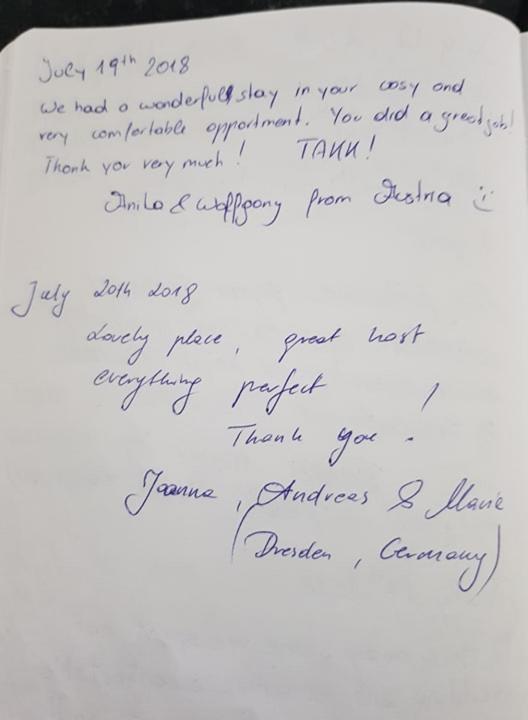 July 19th 2018
We had a wonderful stay in your cosy and
very comfortable appartment. You did a great job!
Thank you very much! TAKK!
Anita & Wolfgang from Austria :)
July 20th 2018
Lovely place, great host
everything perfect
Thank you!
Joanna, Andreas & Marie
(Dresden, Germany)